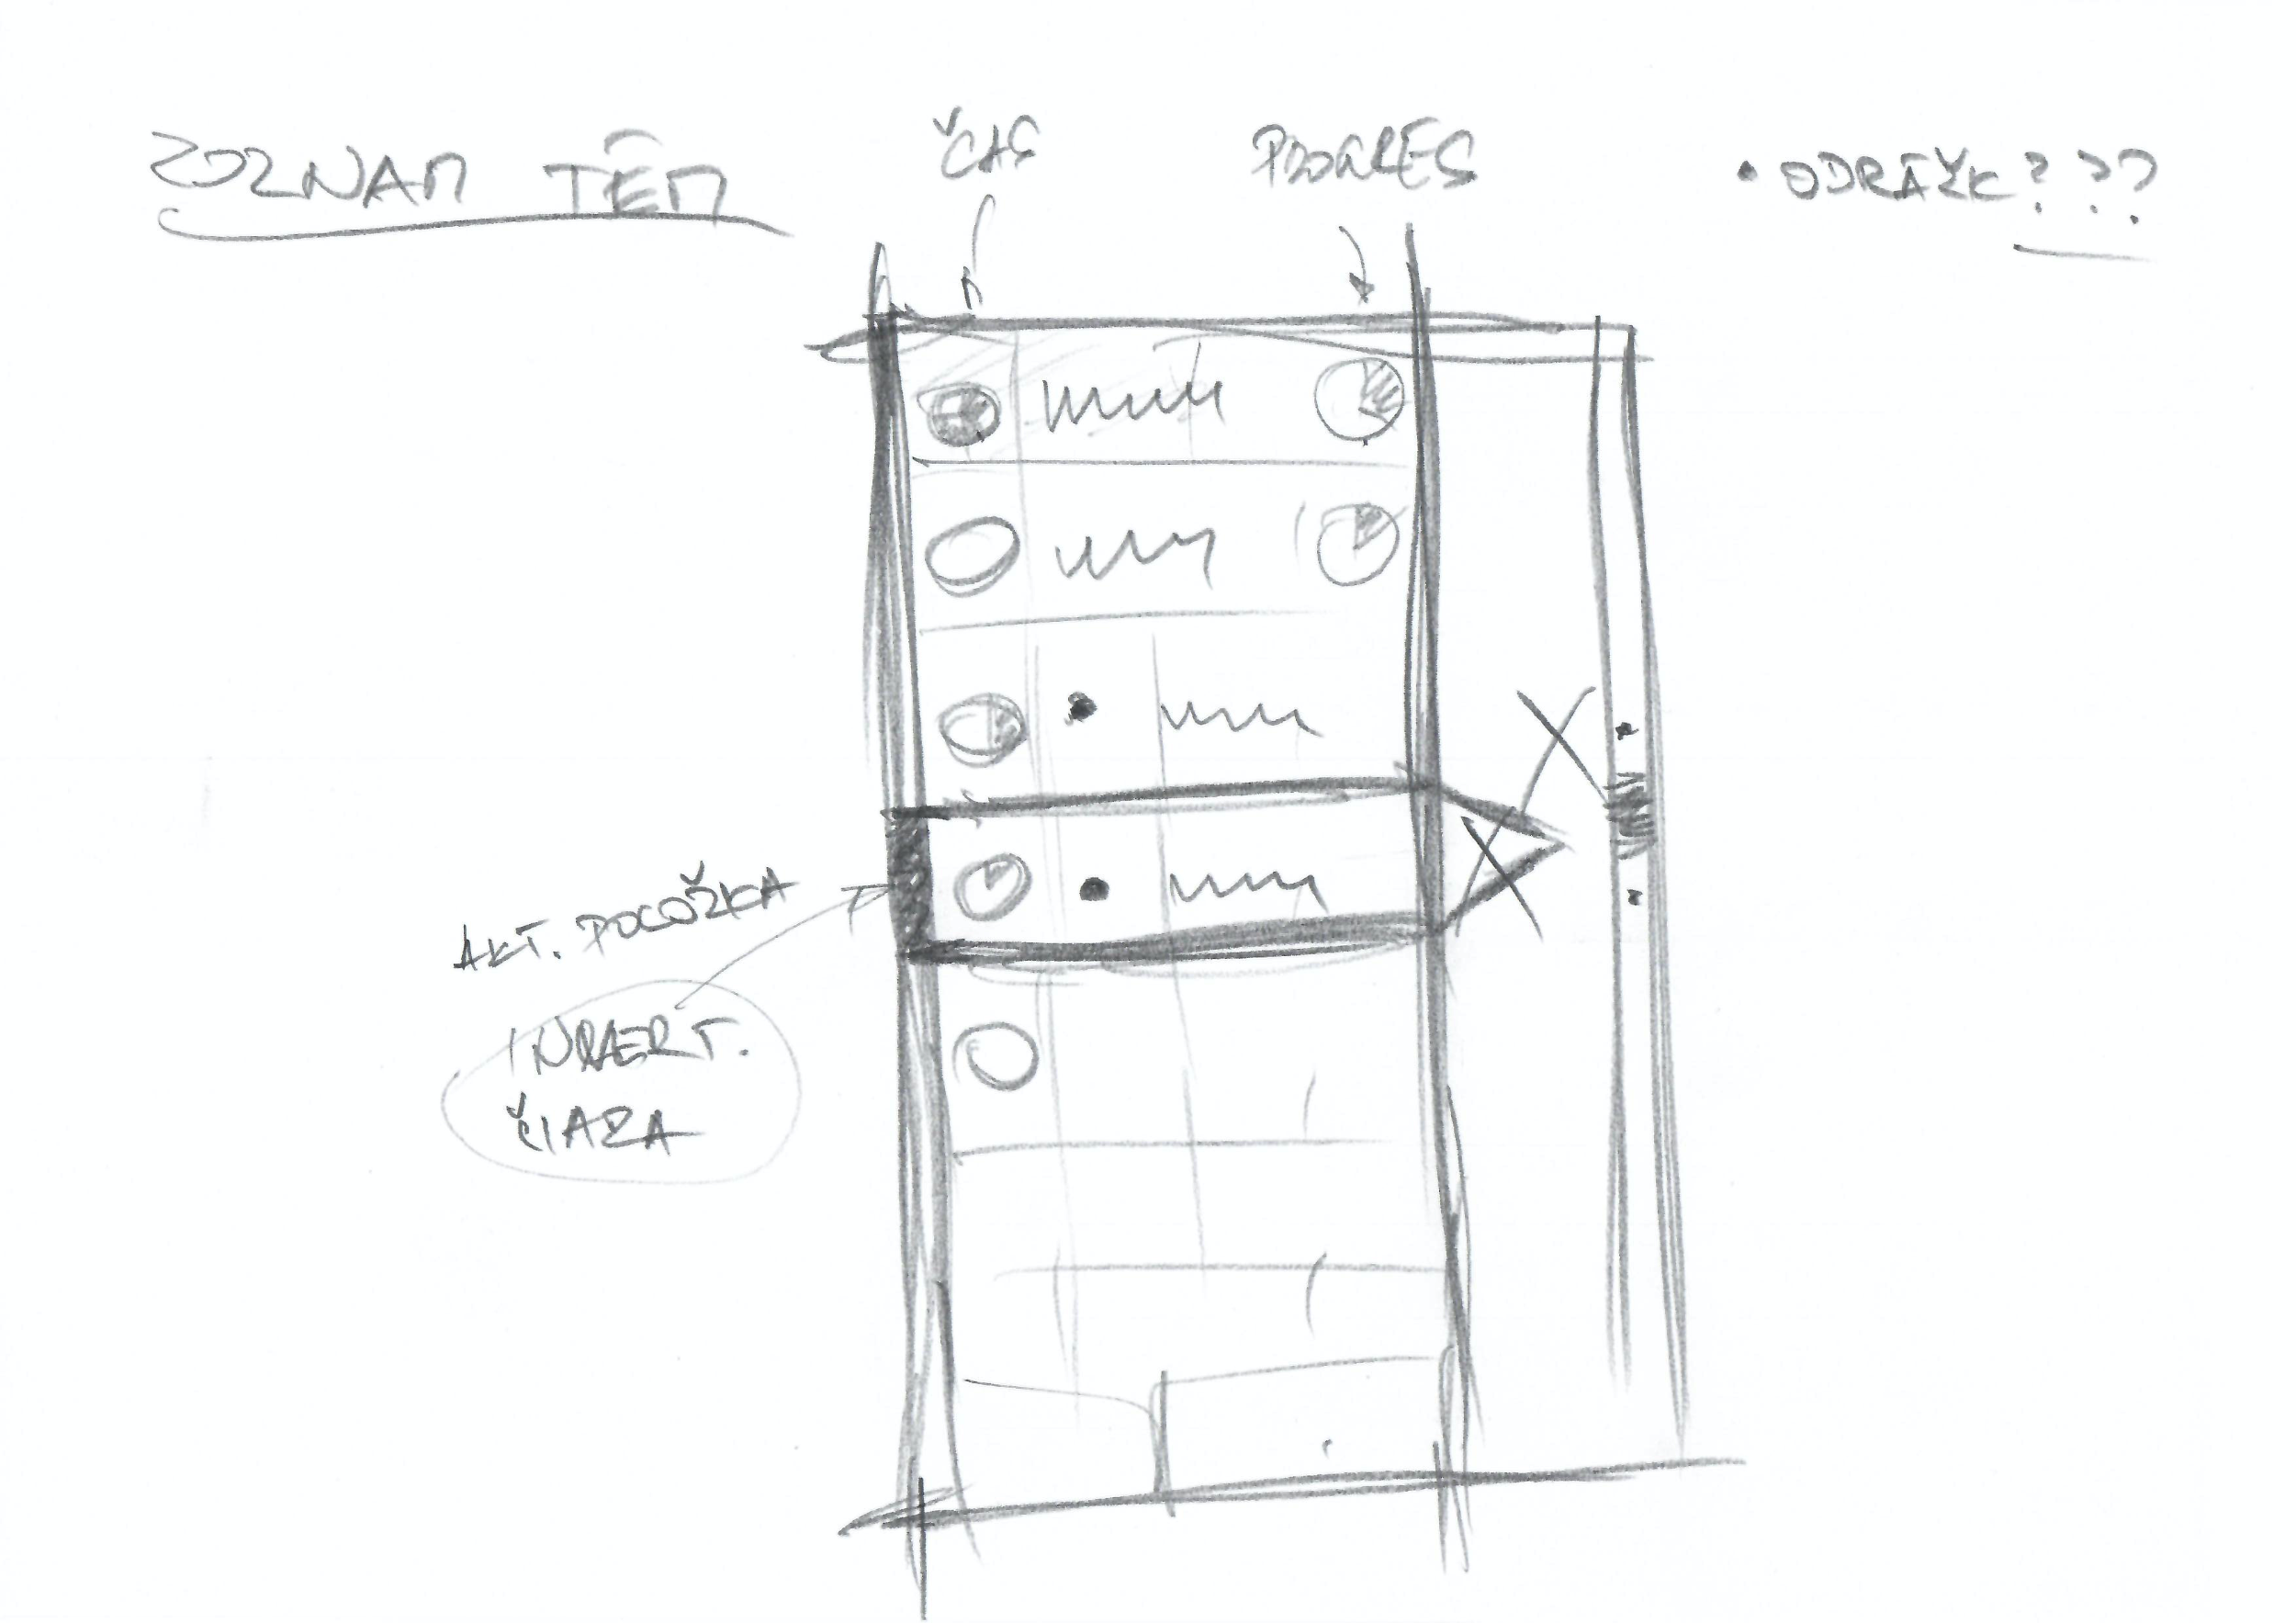 ZOZNAM TÉM
ČAS
PROGRES
• ODRÁŽK???
AKT. POLOŽKA
ČIARA